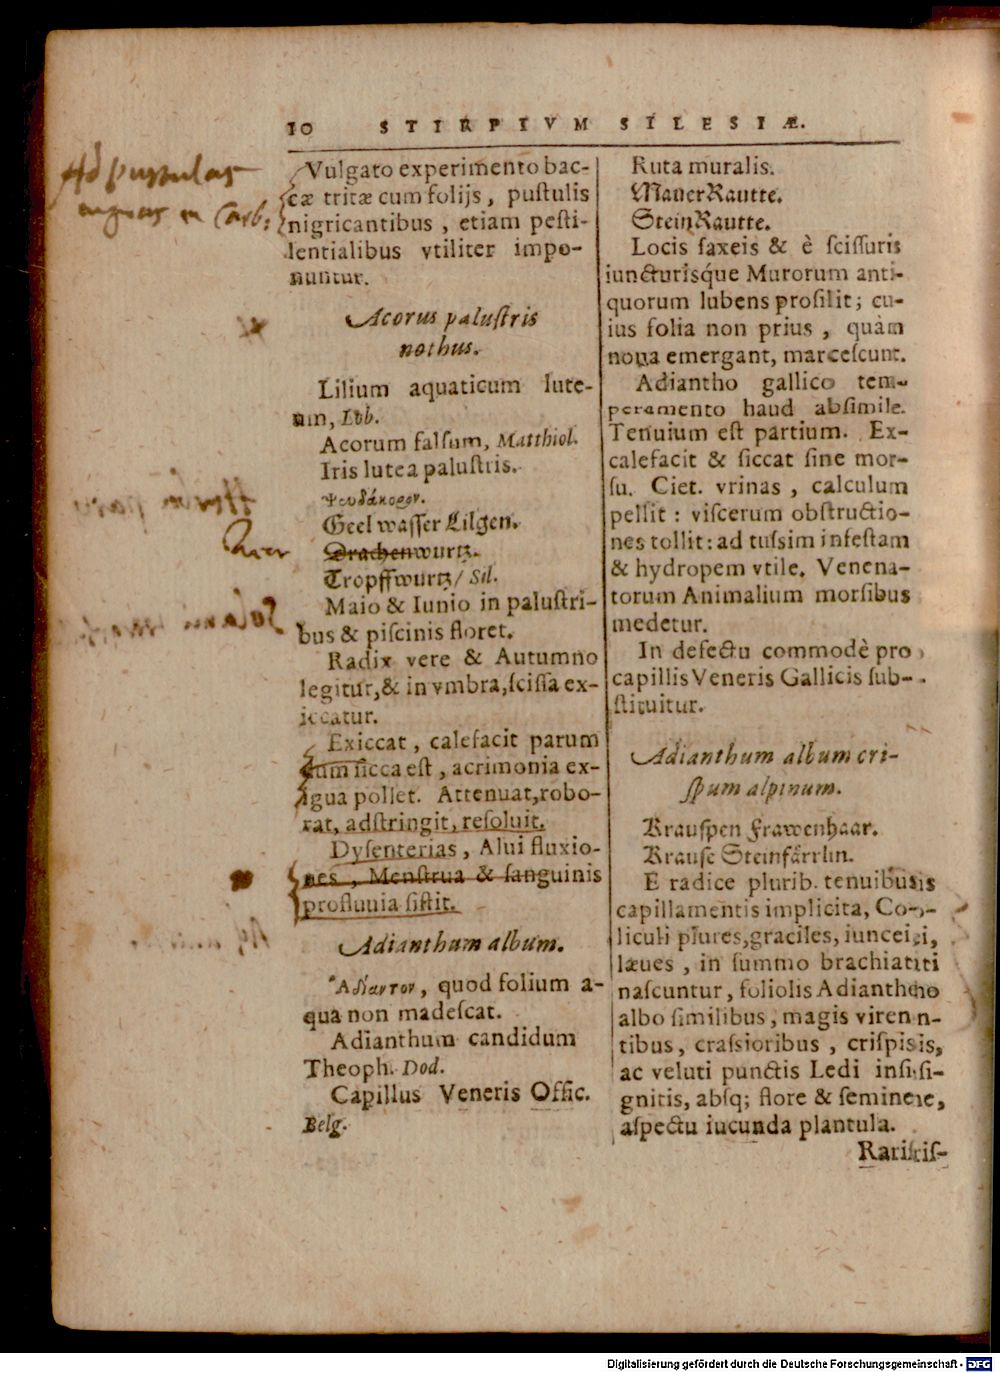 10 STIRPIVM SILESIÆ.
Ad pustulas
nigras et Carb:
Vulgato experimento bac-
cæ tritæ cum folijs, puſtulis
nigricantibus, etiam peſti-
lentialibus vtiliter impo-
nuntur.
Acorus paluſtris
nothus.
Lilium aquaticum lute-
um, Lob.
Acorum falſum, Matthiol.
Iris lutea paluſtris.
Ψευδάκορον.
Geel waſſer Lilgen.
Drachenwurtz.
Tropffwurtz/ Sil.
Maio & Iunio in paluſtri-
bus & piſcinis floret.
Radix vere & Autumno
legitur, & in vmbra, ſciſſa ex-
iccatur.
Exiccat, calefacit parum
cum ſicca eſt, acrimonia ex-
igua pollet. Attenuat, robo-
rat, adſtringit, reſoluit.
Dyſenterias, Alui fluxio-
nes, Menſtrua & ſanguinis
profluuia ſiſtit.
Adianthum album.
Ἀδίαντον, quod folium a-
qua non madeſcat.
Adianthum candidum
Theoph. Dod.
Capillus Veneris Offic.
Belg.
Ruta muralis.
MauerRautte.
SteinRautte.
Locis ſaxeis & è ſciſſuris
iuncturiſque Murorum anti-
quorum lubens proſilit; cu-
ius folia non prius, quàm
noua emergant, marceſcunt.
Adiantho gallico tem-
peramento haud abſimile.
Tenuium eſt partium. Ex-
calefacit & ſiccat ſine mor-
ſu. Ciet. vrinas, calculum
pellit: viſcerum obſtructio-
nes tollit: ad tuſſim infeſtam
& hydropem vtile. Venena-
torum Animalium morſibus
medetur.
In defectu commodè pro
capillis Veneris Gallicis ſub-
ſtituitur.
Adianthum album cri-
ſpum alpinum.
Krauſpen Frawenhaar.
Krauſe Steinfärrlin.
E radice plurib. tenuibus
capillamentis implicita, Co-
liculi plures, graciles, iuncei,
læues, in ſummo brachiati
naſcuntur, foliolis Adiantho
albo ſimilibus, magis viren-
tibus, craſſioribus, criſpis,
ac veluti punctis Ledi inſi-
gnitis, abſq; flore & ſemine,
aſpectu iucunda plantula.
Rariſſiſ-
Digitalisierung gefördert durch die Deutsche Forschungsgemeinschaft - DFG